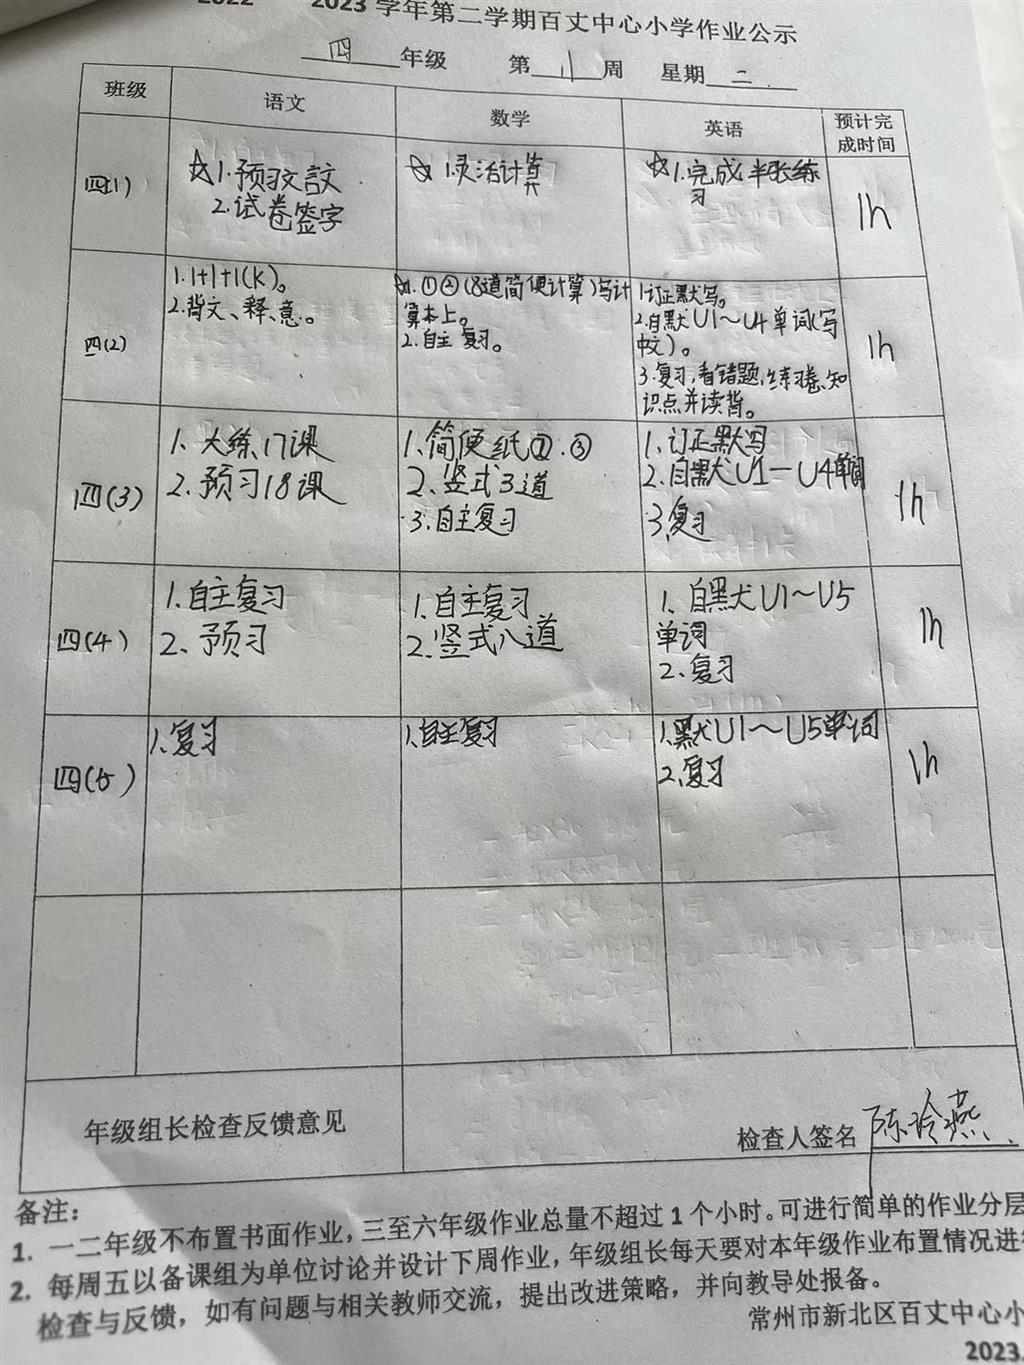 2022 2023学年第二学期百丈中心小学作业公示
四 年级 第 11 周 星期 二
班级 语文 数学 英语 预计完成时间
四(1)
☆1.预习文言文
2.试卷签字
☆1.灵活计算
☆1.完成半张练
习
1h
四(2)
1.1+1+1(K)。
2.背文、释、意。
☆1.①②(8道简便计算)写计
算本上。
2.自主复习。
1.订正默写。
2.自默U1～U4单词(写
中文)。
3.复习,看错题,练习卷、知
识点并读背。
1h
四(3)
1.大练17课
2.预习18课
1.简便纸②.③
2.竖式3道
3.自主复习
1.订正默写
2.自默U1—U4单词
3.复习
1h
四(4)
1.自主复习
2.预习
1.自主复习
2.竖式八道
1.自默U1～U5
单词
2.复习
1h
四(5)
1.复习
1.自主复习
1.默U1～U5单词
2.复习
1h
年级组长检查反馈意见
检查人签名 陈玲燕
备注:
1. 一二年级不布置书面作业,三至六年级作业总量不超过1个小时。可进行简单的作业分层
2. 每周五以备课组为单位讨论并设计下周作业,年级组长每天要对本年级作业布置情况进行
检查与反馈,如有问题与相关教师交流,提出改进策略,并向教导处报备。
常州市新北区百丈中心小
2023.